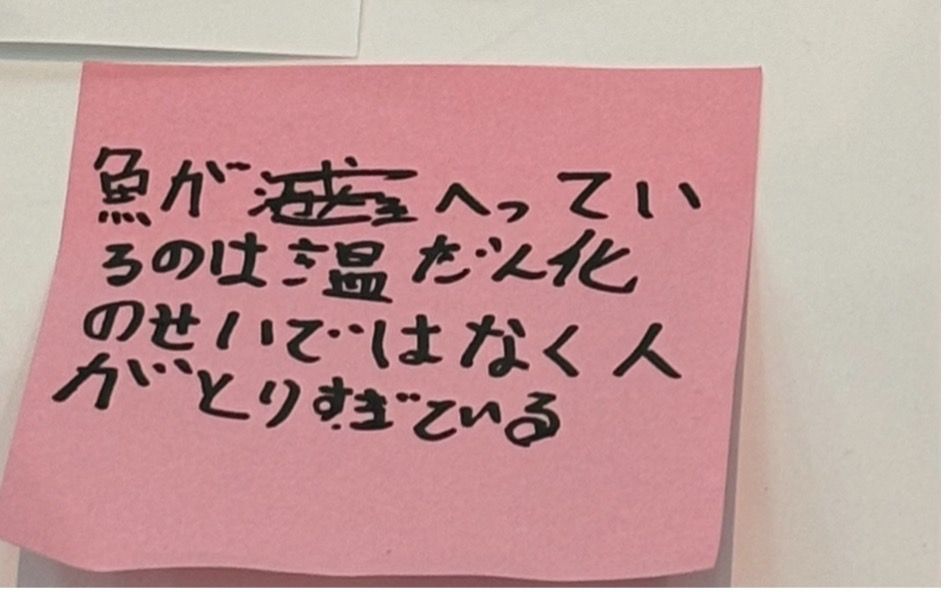 魚がへってい
るのは温だん化
のせいではなく人
がとりすぎている